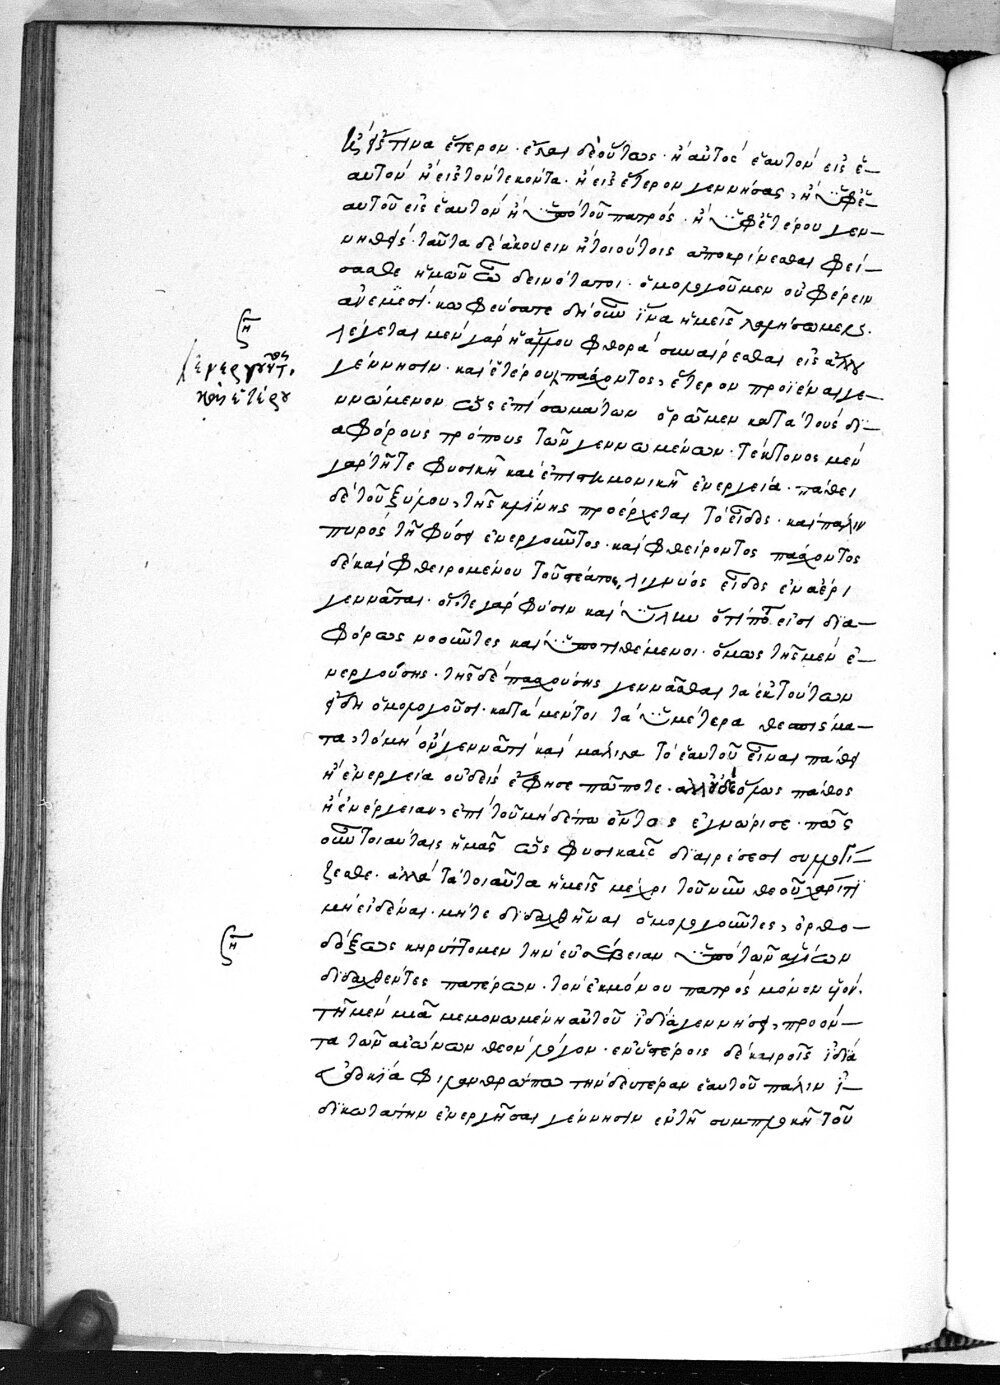 ἐφ' ἕτινα ἕτερον· ἔσται δὲ οὕτως· ἢ αὐτὸς ἑαυτὸν εἰς ἑ-
αυτὸν ἢ εἰς τὸν τεκόντα· ἢ εἰς ἕτερον γεννήσας, ἢ ὑφ' ἑ-
αυτοῦ εἰς ἑαυτὸν ἢ ὑπὸ τοῦ πατρός· ἢ ὑφ' ἑτέρου γεν-
νηθείς· ταῦτα δὲ ἀκούειν ἢ τοιούτοις ἀποκρίνεσθαι φεί-
σασθε ἡμῶν ὦ δεινότατοι· ὁμολογοῦμεν οὐ φέρειν
ἀνεμέσι· φεύσατε δὴ οὖν ἵνα ἡμεῖς
λέγεται μὲν γὰρ ἡ ἄλλου φθορὰ συναιρεῖσθαι εἰς ἄλλου
γέννησιν· καὶ ἑτέρου πάσχοντος, ἕτερον προϊέναι γε-
ννώμενον ὡς ἐπὶ σωμάτων ὁρῶμεν κατὰ τοὺς δι-
αφόρους τρόπους τῶν γεννωμένων· τέκτονος μὲν
γὰρ τῇ τε φυσικῇ καὶ ἐπιστημονικῇ ἐνεργείᾳ· πάθει
δὲ τοῦ ξύλου, τῆς κλίνης προέρχεται τὸ εἶδος· καὶ πάλιν
πυρὸς τῇ φύσει ἐνεργοῦντος· καὶ φθείροντος πάσχοντος
δὲ καὶ φθειρομένου τοῦ στέατος, λιγνύος εἶδος ἐν ἀέρι
γεννᾶται· οἵ τε γὰρ φύσιν καὶ ὕλην ὅτι ποτέ εἰσι δια-
φόρως νοοῦντες καὶ ὑποτιθέμενοι· ὅμως τῆς μὲν ἐ-
νεργούσης· τῆς δὲ πασχούσης γεννᾶσθαι τὰ ἐκ τούτων
εἴδη ὁμολογοῦσι· κατὰ μέντοι τὰ ὑμέτερα θεσπίσμα-
τα, τὸ μὴ ὂν γεννᾶν τι καὶ μάλιστα τὸ ἑαυτοῦ εἶναι πάθει
ἢ ἐνεργείᾳ οὐδεὶς ἔφησε πώποτε· ἀλλ' οὐδὲ ὅμως πάθος
ἢ ἐνέργειαν, ἐπὶ τοῦ μηδέπω ὄντος ἐγνώρισε· πῶς
οὖν τοιαύταις ἡμᾶς ὡς φυσικαῖς διαιρέσεσι συμμερί-
ζεσθε· ἀλλὰ τὰ τοιαῦτα ἡμεῖς μέχρι τοῦ νῦν θεοῦ χάριτι
μὴ εἰδέναι· μήτε διδαχθῆναι ὁμολογοῦντες, ὀρθο-
δόξως κηρύττομεν τὴν εὐσέβειαν ὑπὸ τῶν ἁγίων
διδαχθέντες πατέρων· τὸν ἐκ μόνου πατρὸς μόνον υἱόν.
τῇ μὲν μιᾷ μεμονωμένῃ αὐτοῦ ἰδίᾳ γεννήσει, προόν-
τα τῶν αἰώνων θεὸν λόγον· ἐν ὑστέροις δὲ καιροῖς ἰδίᾳ
εὐδοκίᾳ φιλανθρώπως τὴν δευτέραν ἑαυτοῦ πάλιν ἰ-
δικωτάτην ἐνεργῆσαι γέννησιν ἐν τῇ συμπλοκῇ τοῦ